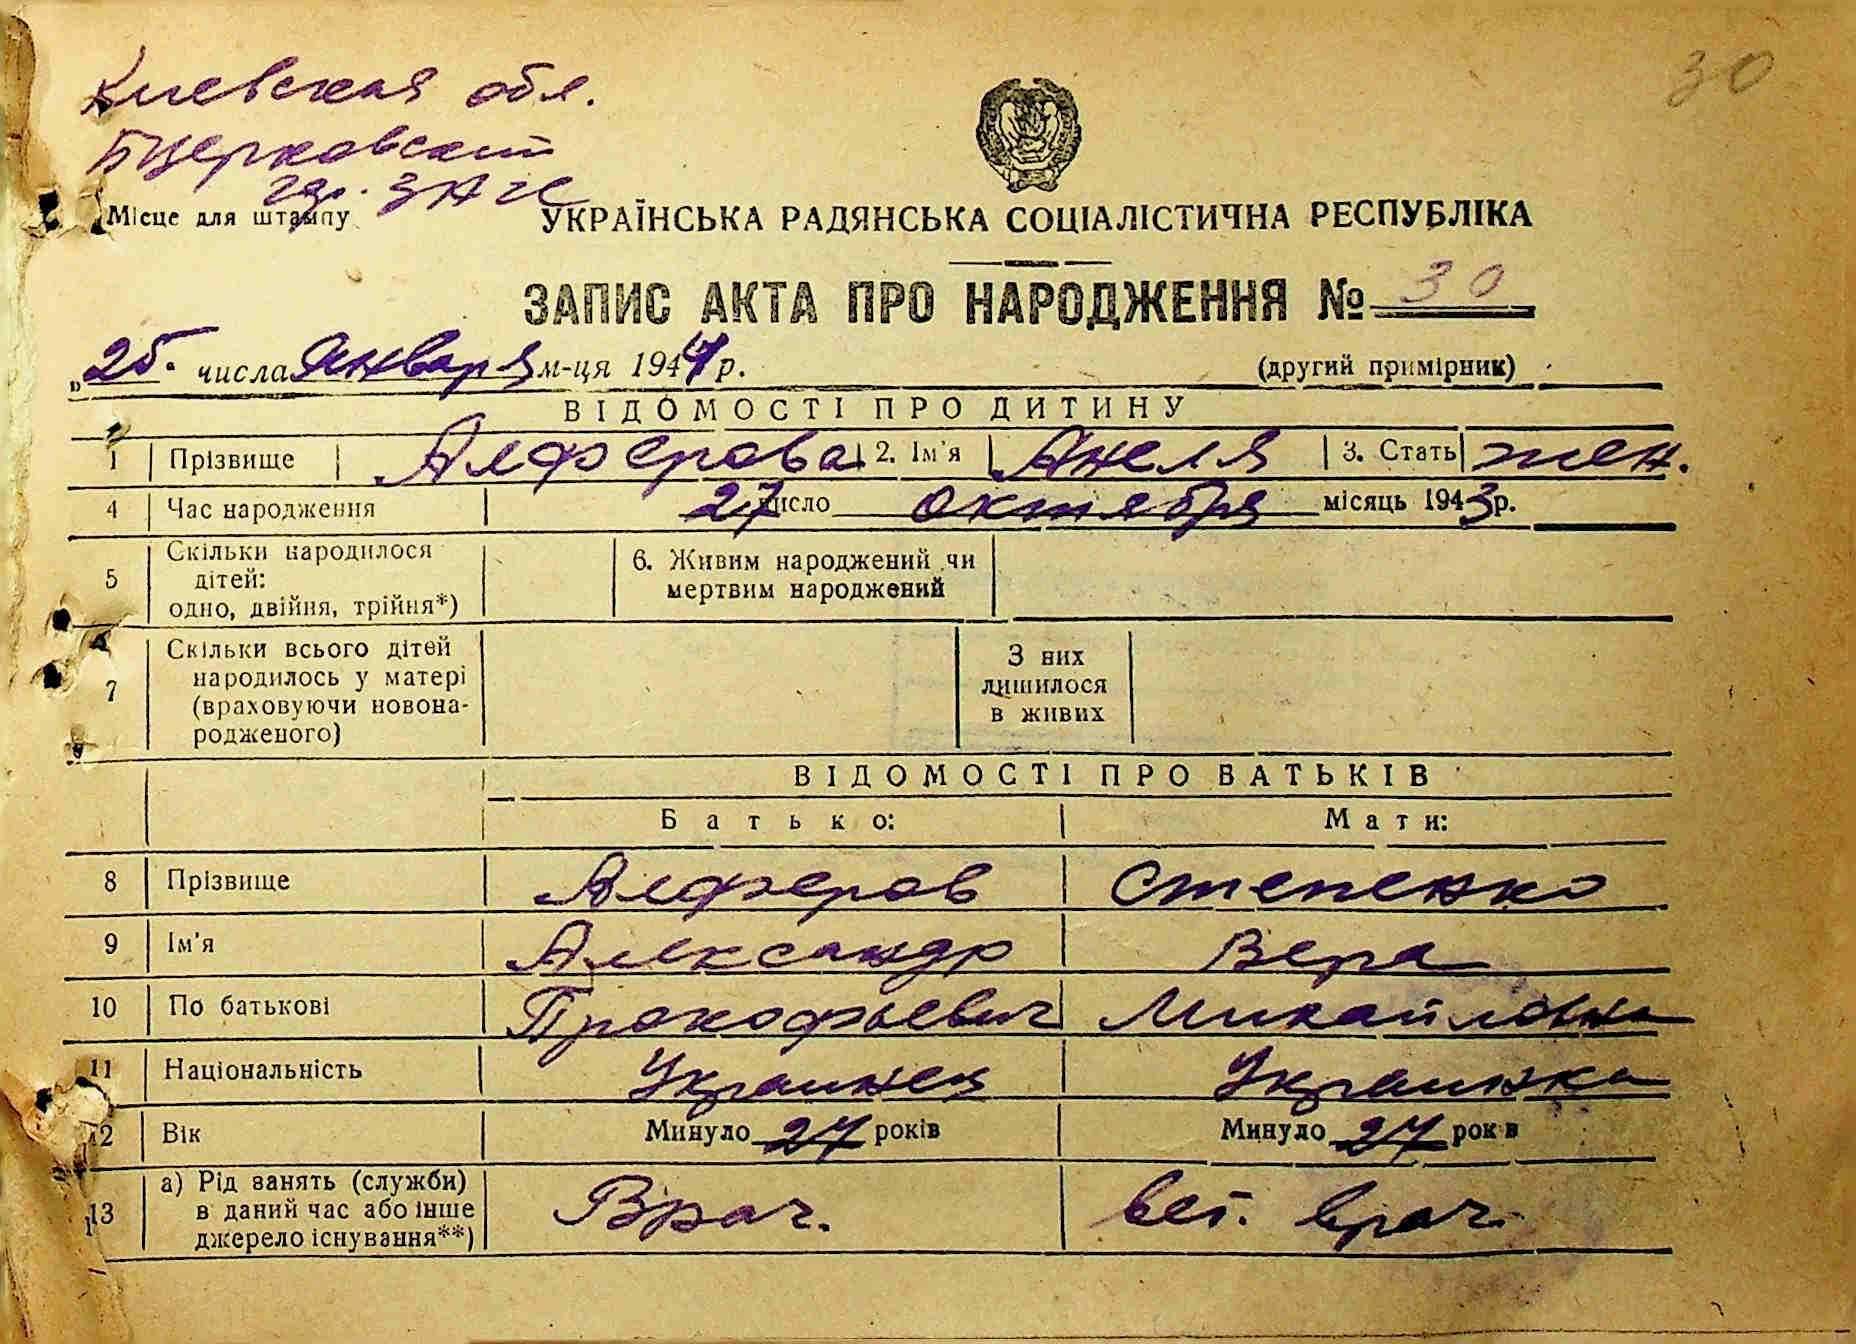 Киевская обл.
30
Бцерковский
гор. ЗАГС
Місце для штампу
УКРАЇНСЬКА РАДЯНСЬКА СОЦІАЛІСТИЧНА РЕСПУБЛІКА
ЗАПИС АКТА ПРО НАРОДЖЕННЯ № 30
„25" числа Января м-ця 1944 р. (другий примірник)
ВІДОМОСТІ ПРО ДИТИНУ
1 Прізвище Алферова 2. Ім'я Анеля 3. Стать жен.
4 Час народження 27 число октября місяць 1943 р.
5 Скільки народилося
дітей:
одно, двійня, трійня*)
6. Живим народжений чи
мертвим народжений
7 Скільки всього дітей
народилось у матері
(враховуючи новона-
родженого)
З них
лишилося
в живих
ВІДОМОСТІ ПРО БАТЬКІВ
Батько: Мати:
8 Прізвище Алферов Степенко
9 Ім'я Александр Вера
10 По батькові Прокофьевич Михайловна
11 Національність Украинец Украинка
12 Вік Минуло 27 років Минуло 27 років
13 а) Рід занять (служби)
в даний час або інше
джерело існування**)
Врач. вет. врач.